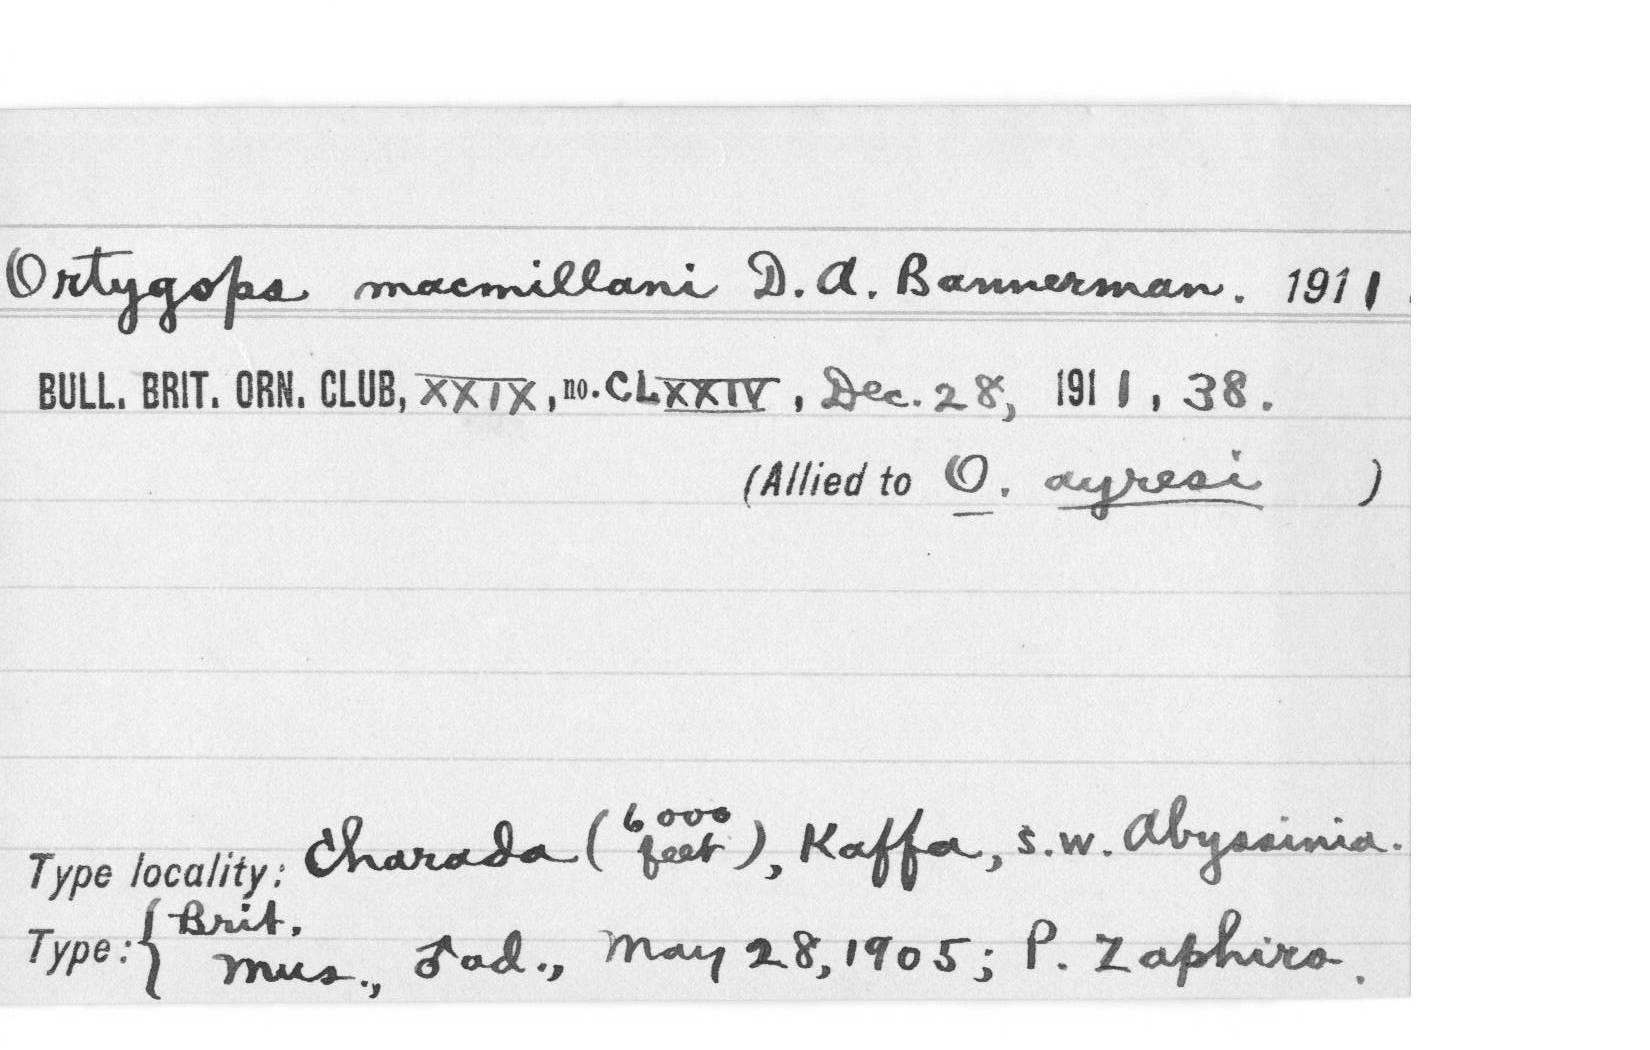 Ortygops macmillani D. A. Bannerman. 1911.
BULL. BRIT. ORN. CLUB, XXIX, no. CLXXIV, Dec. 28, 1911, 38.
(Allied to O. ayresi )
Type locality: Charada (6000 feet), Kaffa, S.W. Abyssinia.
Type: { Brit. Mus., ♂ ad., May 28, 1905; P. Zaphiro.